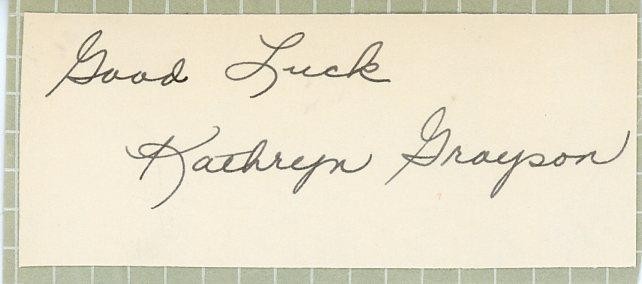 Good Luck
Kathryn Grayson